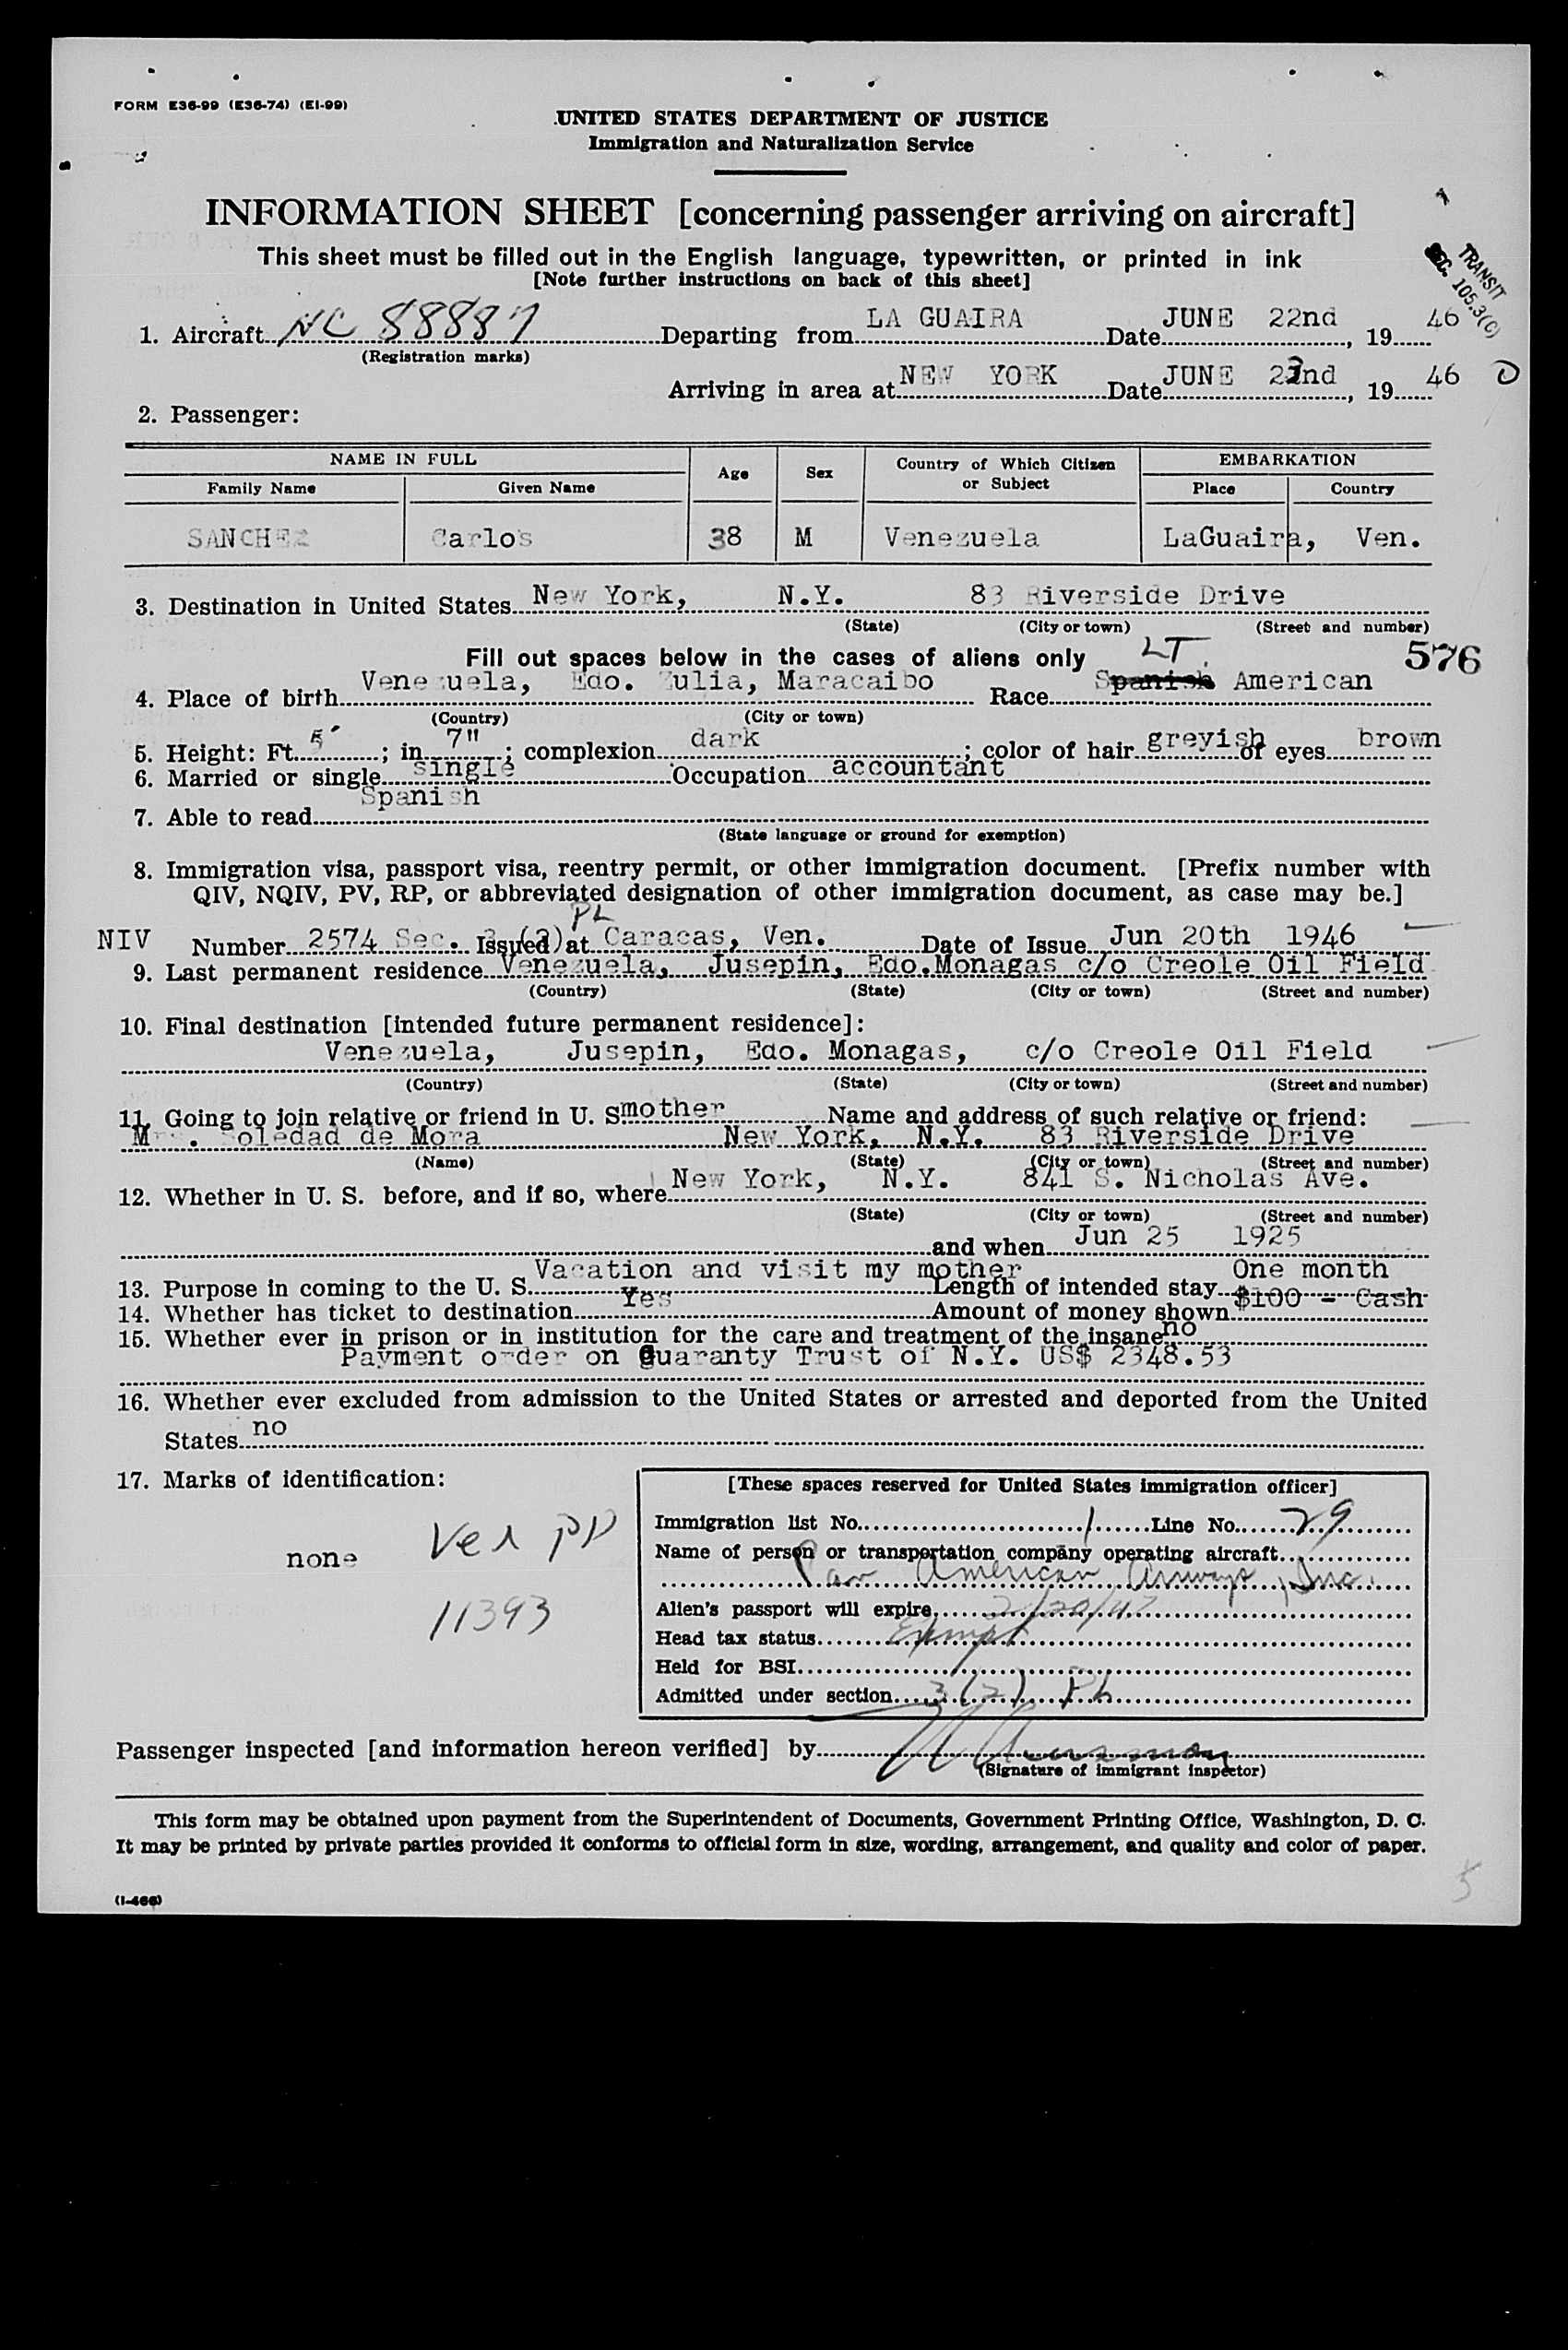 FORM E36-99 (E36-74) (E1-99)
UNITED STATES DEPARTMENT OF JUSTICE
Immigration and Naturalization Service
INFORMATION SHEET [concerning passenger arriving on aircraft]
This sheet must be filled out in the English language, typewritten, or printed in ink
[Note further instructions on back of this sheet]
TRANSIT
SEC. 105.3(C)
1. Aircraft NC 88887 Departing from LA GUAIRA Date JUNE 22nd, 19 46
(Registration marks)
Arriving in area at NEW YORK Date JUNE 23nd, 19 46 D
2. Passenger:
NAME IN FULL Age Sex Country of Which Citizen or Subject EMBARKATION
Family Name Given Name Place Country
SANCHEZ Carlos 38 M Venezuela LaGuaira, Ven.
3. Destination in United States New York, N.Y. 83 Riverside Drive
(State) (City or town) (Street and number)
Fill out spaces below in the cases of aliens only LT. 576
4. Place of birth Venezuela, Edo. Zulia, Maracaibo Race Spanish American
(Country) (City or town)
5. Height: Ft. 5' ; in 7" ; complexion dark ; color of hair greyish of eyes brown
6. Married or single single Occupation accountant
7. Able to read Spanish
(State language or ground for exemption)
8. Immigration visa, passport visa, reentry permit, or other immigration document. [Prefix number with
QIV, NQIV, PV, RP, or abbreviated designation of other immigration document, as case may be.]
PL
NIV Number 2574 Sec. 3 (2) Issued at Caracas, Ven. Date of Issue Jun 20th 1946
9. Last permanent residence Venezuela, Jusepin, Edo. Monagas c/o Creole Oil Field
(Country) (State) (City or town) (Street and number)
10. Final destination [intended future permanent residence]:
Venezuela, Jusepin, Edo. Monagas, c/o Creole Oil Field
(Country) (State) (City or town) (Street and number)
11. Going to join relative or friend in U. S. mother Name and address of such relative or friend:
Mrs. Soledad de Mora New York, N.Y. 83 Riverside Drive
(Name) (State) (City or town) (Street and number)
12. Whether in U. S. before, and if so, where New York, N.Y. 841 S. Nicholas Ave.
(State) (City or town) (Street and number)
and when Jun 25 1925
13. Purpose in coming to the U. S. Vacation and visit my mother Length of intended stay One month
14. Whether has ticket to destination Yes Amount of money shown $100 - Cash
15. Whether ever in prison or in institution for the care and treatment of the insane no
Payment order on Guaranty Trust of N.Y. US$ 2348.53
16. Whether ever excluded from admission to the United States or arrested and deported from the United
States no
17. Marks of identification:
none
Ven PP
11393
[These spaces reserved for United States immigration officer]
Immigration list No. 1 Line No. 29
Name of person or transportation company operating aircraft
Pan American Airways, Inc.
Alien's passport will expire 2/20/47
Head tax status Exempt
Held for BSI
Admitted under section 3(2) PL
Passenger inspected [and information hereon verified] by
(Signature of immigrant inspector)
This form may be obtained upon payment from the Superintendent of Documents, Government Printing Office, Washington, D. C.
It may be printed by private parties provided it conforms to official form in size, wording, arrangement, and quality and color of paper.
(I-466)
5